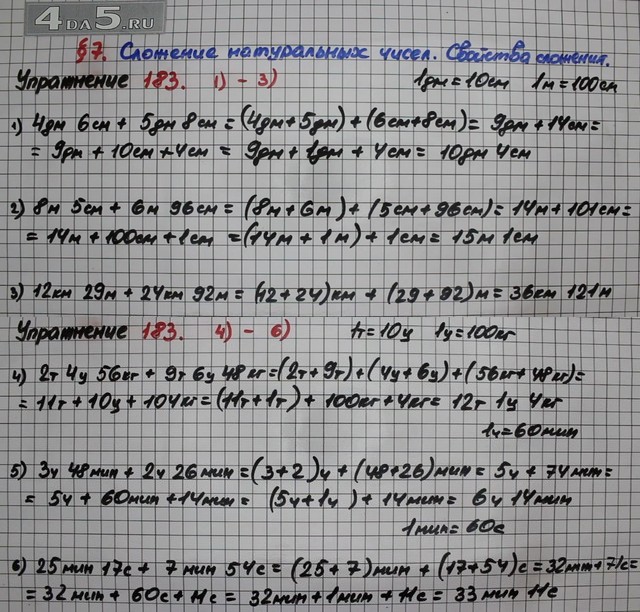 4DA5.RU
§7. Сложение натуральных чисел. Свойства сложения.
Упражнение 183. 1) - 3) 1дм=10см 1м=100см
1) 4дм 6см + 5дм 8см = (4дм+5дм) + (6см+8см) = 9дм+14см=
= 9дм + 10см + 4см = 9дм + 1дм + 4см = 10дм 4см
2) 8м 5см + 6м 96см = (8м+6м) + (5см+96см) = 14м+101см=
= 14м+100см+1см = (14м + 1м) + 1см = 15м 1см
3) 12км 29м + 24км 92м = (12+24)км + (29+92)м = 36км 121м
Упражнение 183. 4) - 6) 1т=10ц 1ц=100кг
4) 2т 4ц 56кг + 9т 6ц 48кг = (2т+9т) + (4ц+6ц) + (56кг+48кг)=
= 11т + 10ц + 104кг = (11т+1т) + 100кг+4кг = 12т 1ц 4кг
1ч=60мин
5) 3ч 48мин + 2ч 26мин = (3+2)ч + (48+26)мин = 5ч + 74мин=
= 5ч + 60мин +14мин = (5ч+1ч) + 14мин = 6ч 14мин
1мин=60с
6) 25мин 17с + 7мин 54с = (25+7)мин + (17+54)с = 32мин+71с=
= 32мин + 60с + 11с = 32мин+1мин + 11с = 33мин 11с